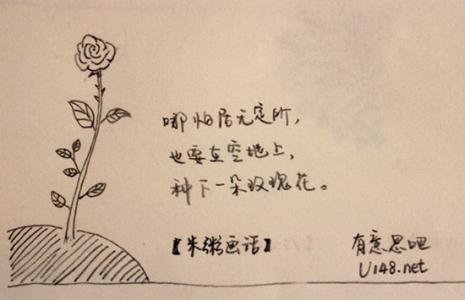 哪怕居无定所，
也要在空地上，
种下一朵玫瑰花。
【朱粥画话】
有意思吧
U148.net